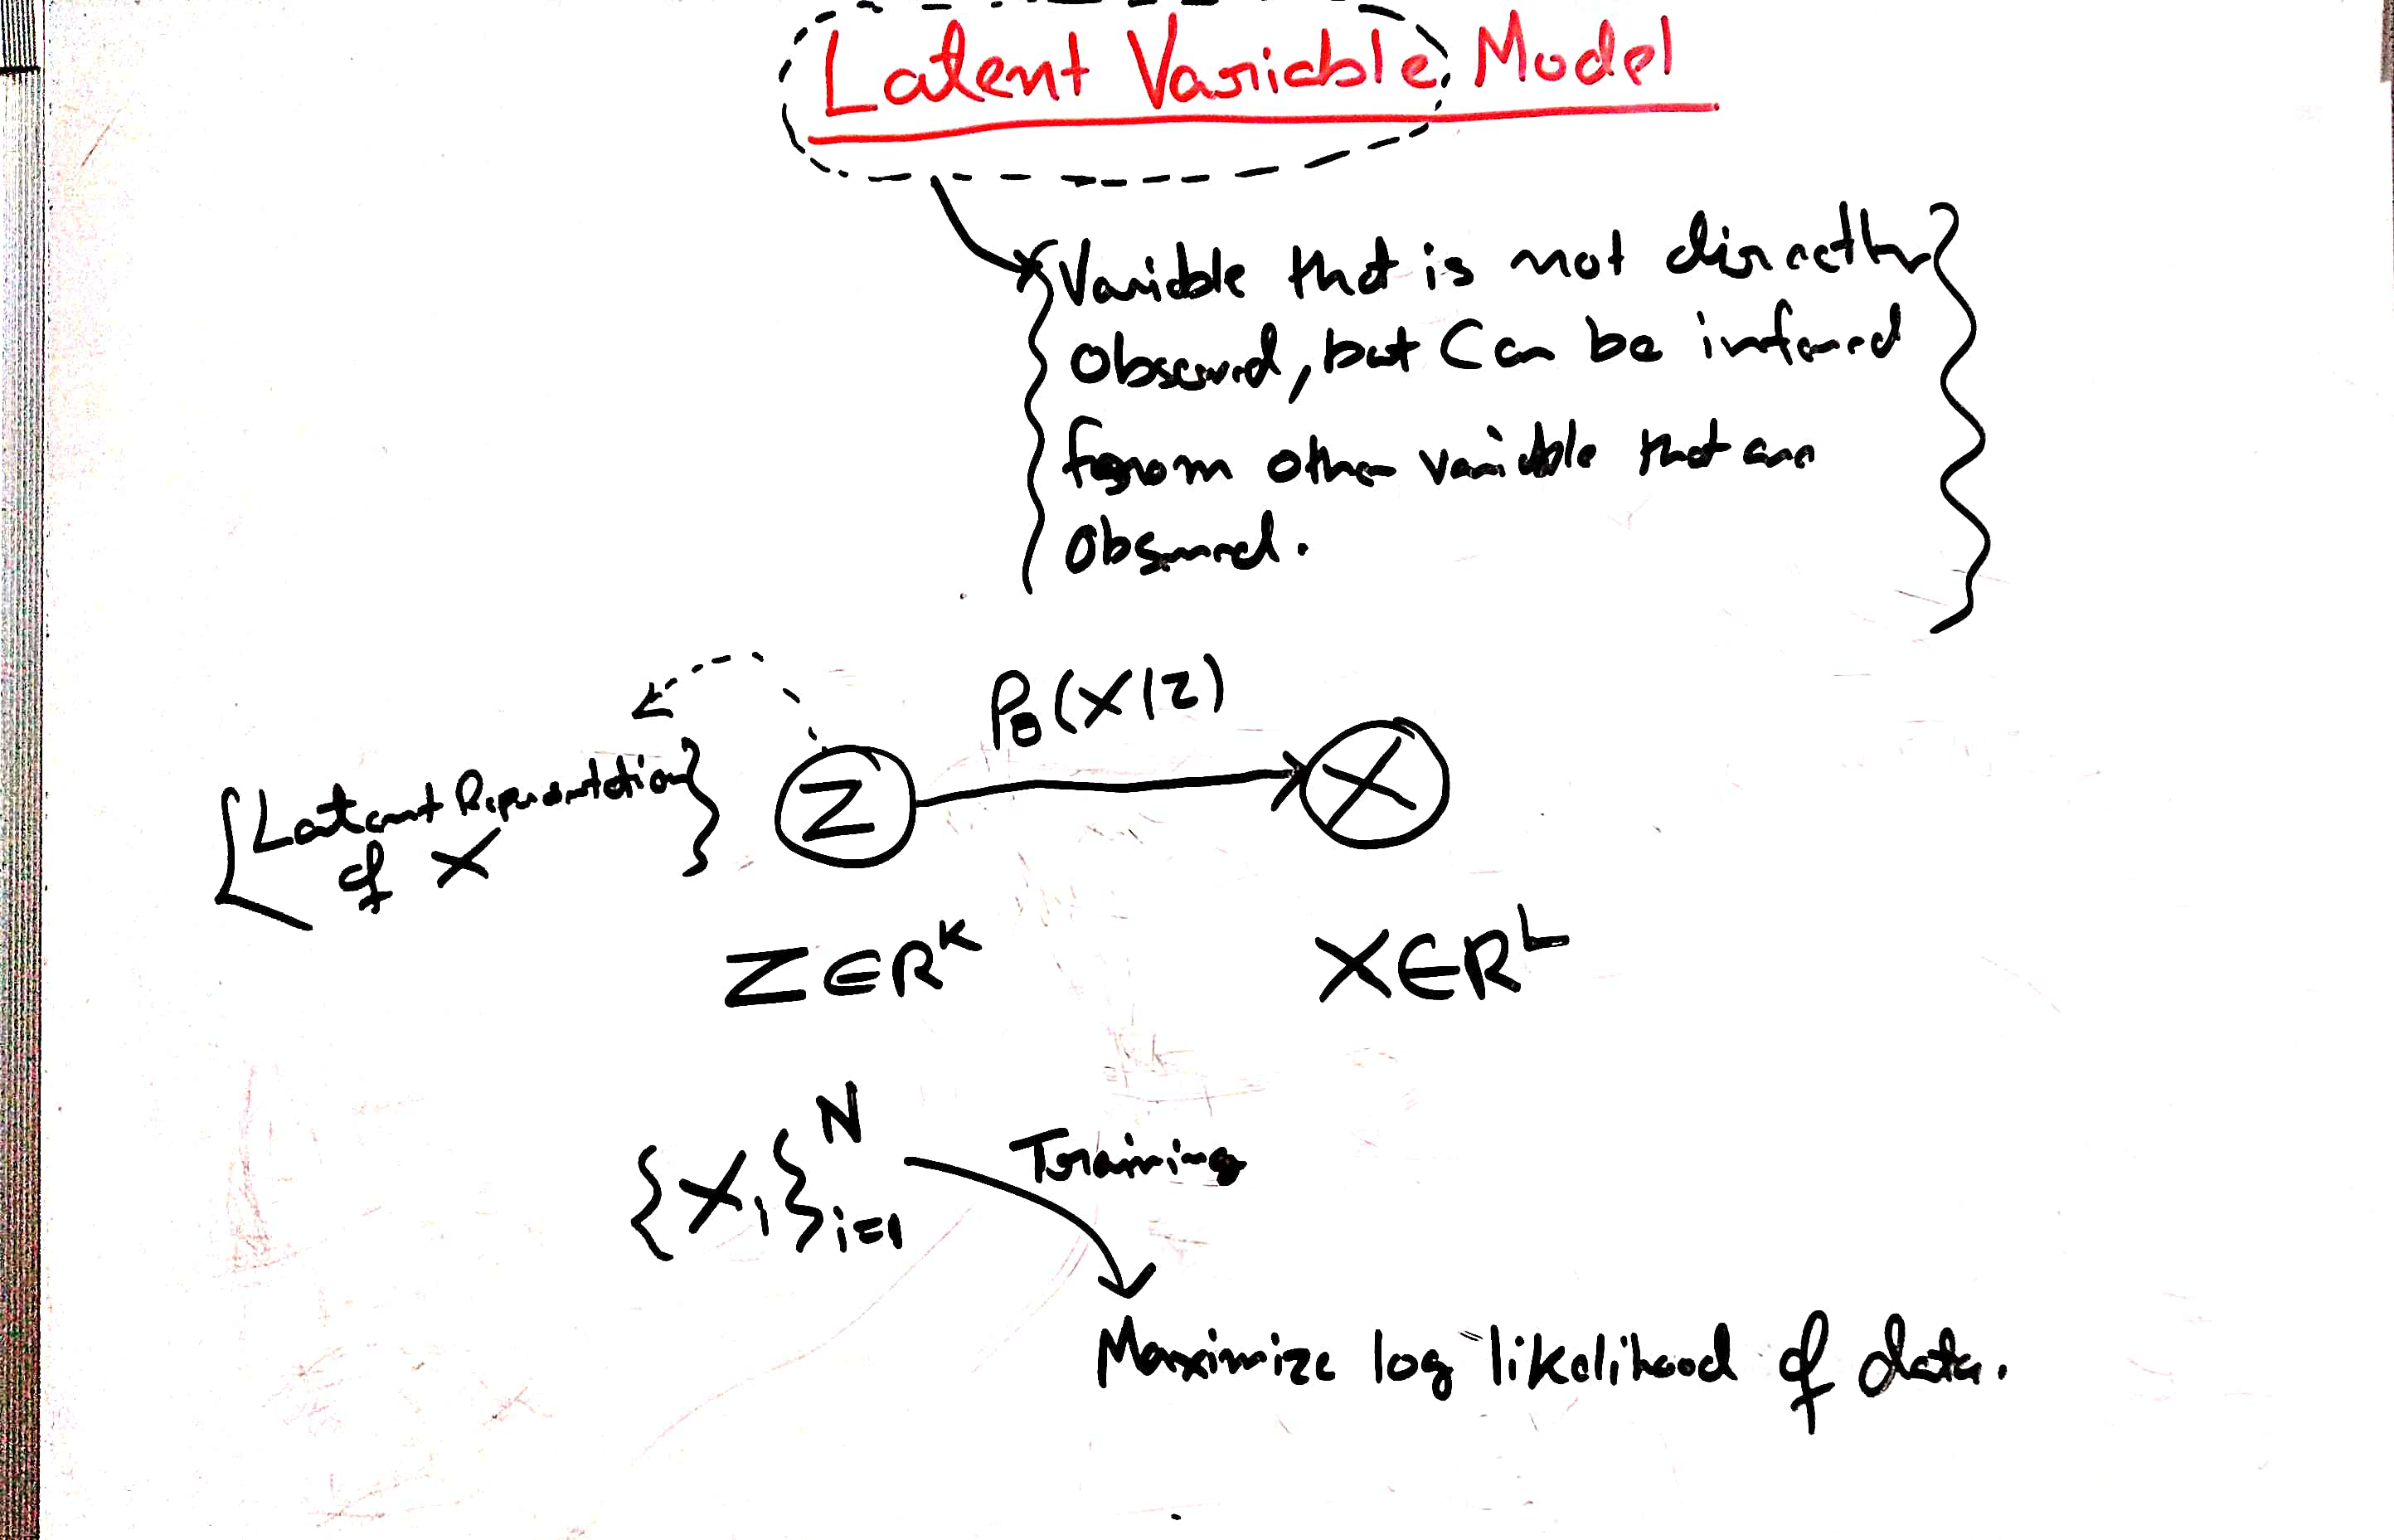 Latent Variable Model
Variable that is not directly
observed, but can be inferred
from other variable that are
observed.
Pθ(X|Z)
Z
X
Latent Representation
of X
Z∈R^K
X∈R^L
{X_i}_{i=1}^N
Training
Maximize log likelihood of data.